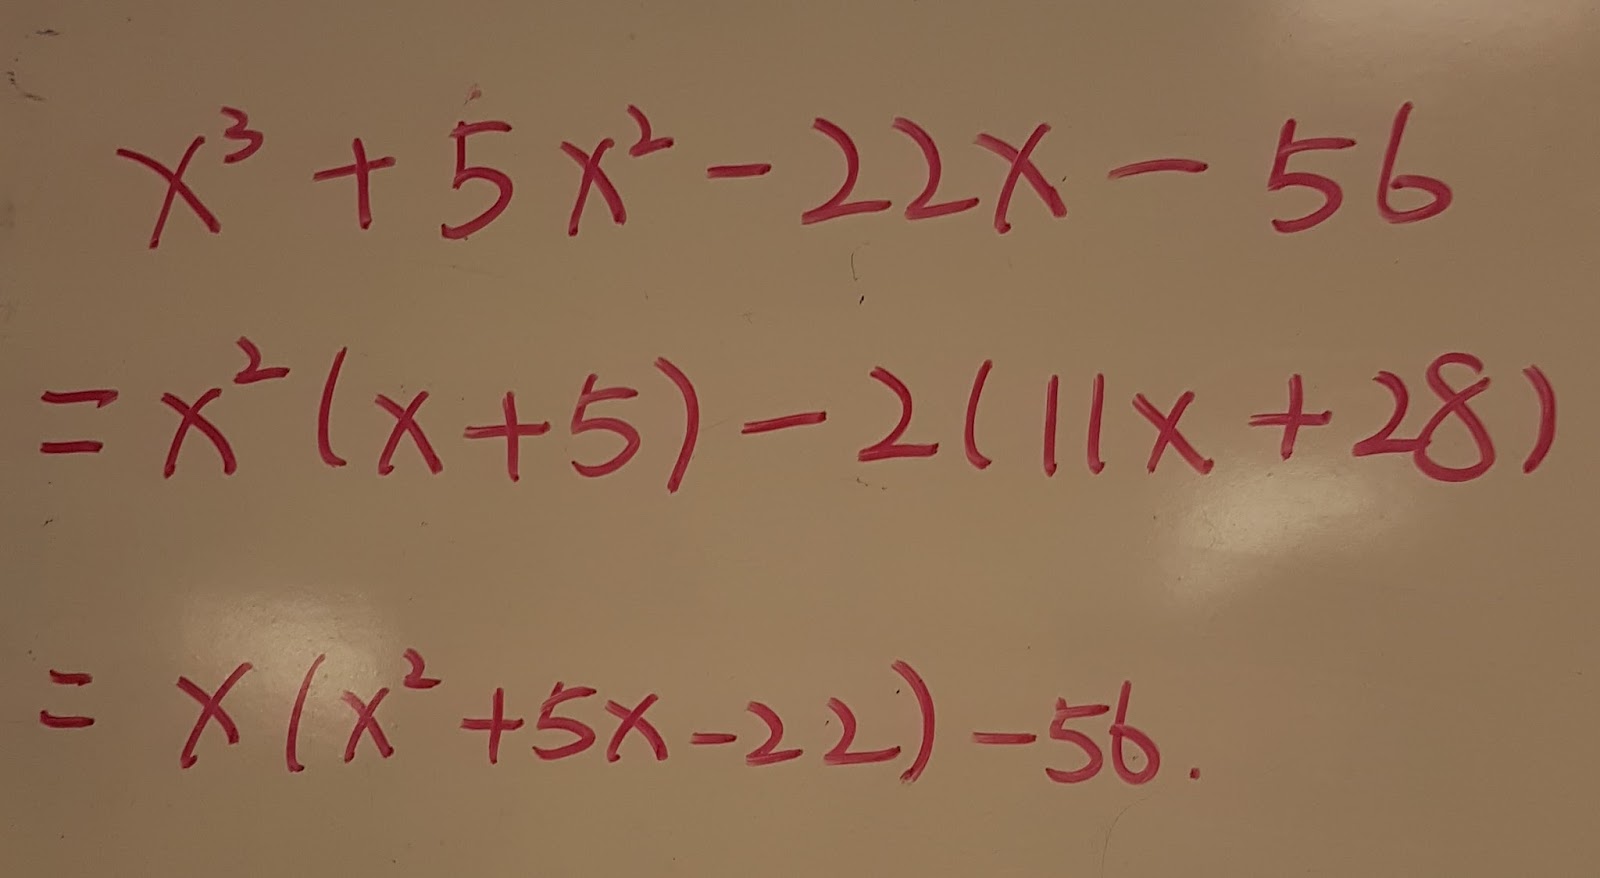 x³ + 5x² - 22x - 56
= x²(x+5) - 2(11x + 28)
= x(x² + 5x - 22) - 56.